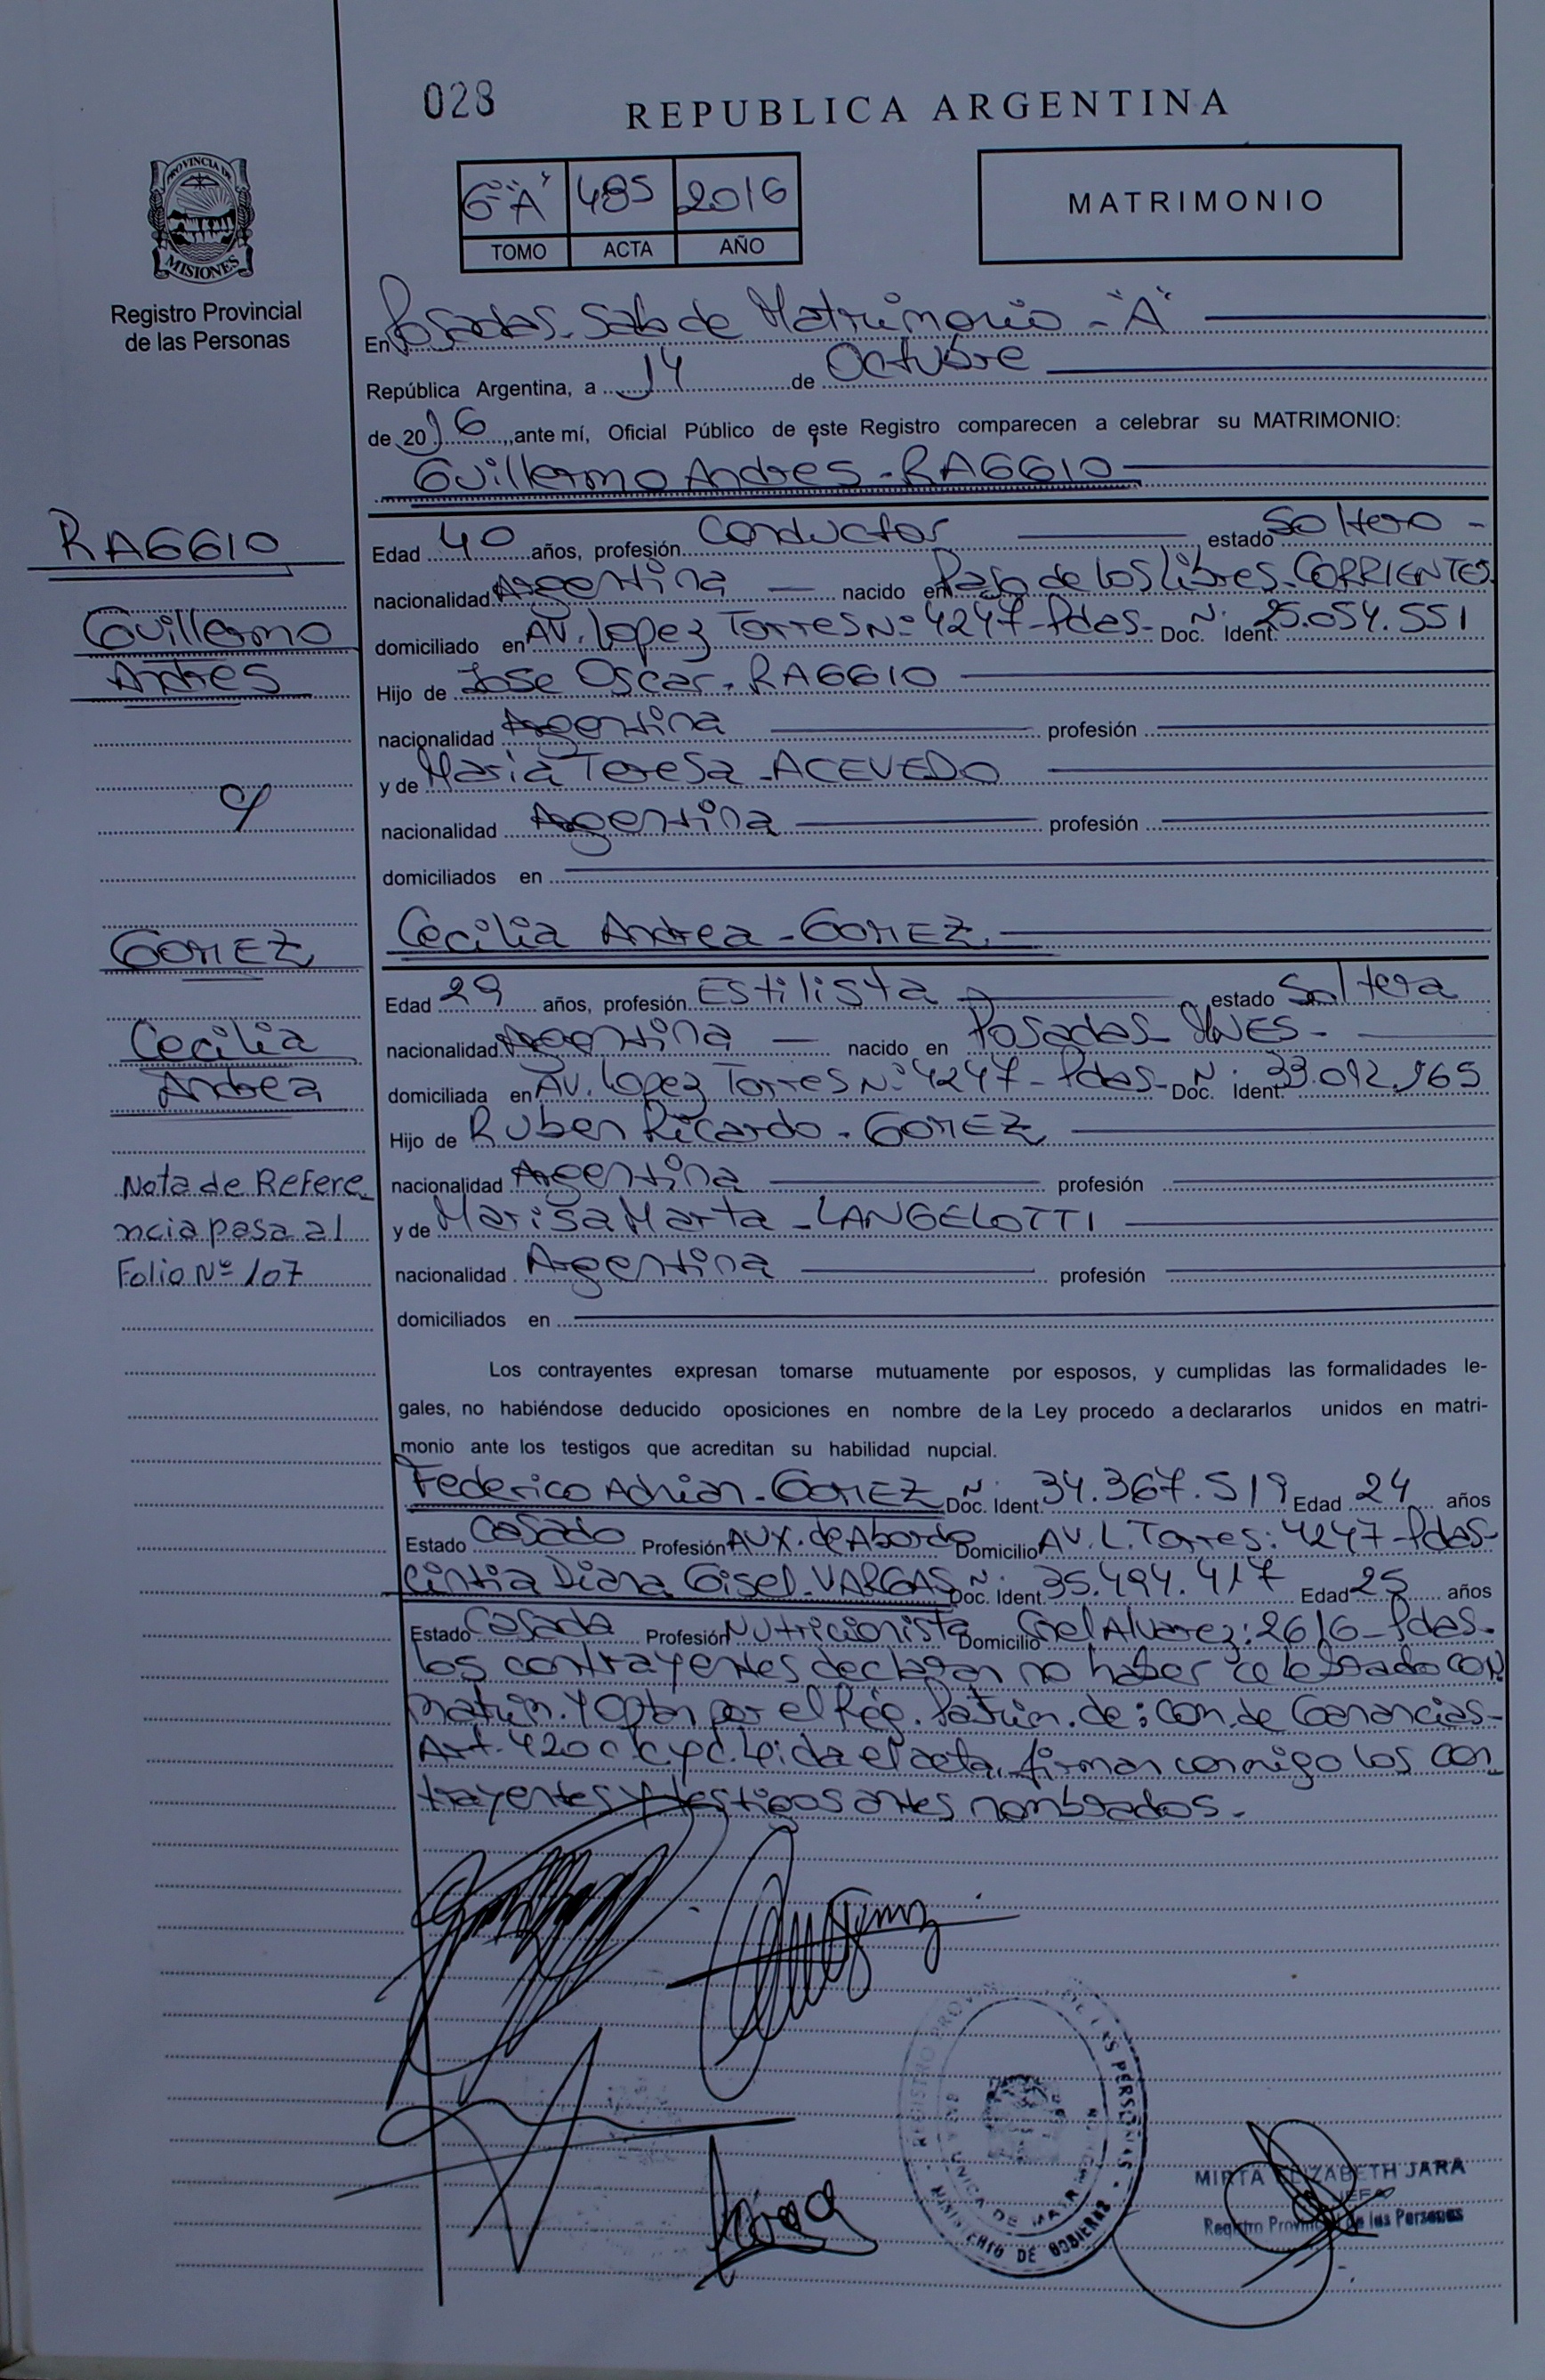 028
REPUBLICA ARGENTINA
PROVINCIA DE
MISIONES
Registro Provincial
de las Personas
6º "A" 485 2016
TOMO ACTA AÑO
MATRIMONIO
En Posadas-Sala de Matrimonio-"A"
República Argentina, a 14 de Octubre
de 2016, ante mí, Oficial Público de este Registro comparecen a celebrar su MATRIMONIO:
Guillermo Andres-RAGGIO
RAGGIO
Guillermo
Andres
Edad 40 años, profesión Conductor estado Soltero-
nacionalidad Argentina nacido en Paso de los Libres-CORRIENTES
domiciliado en AV. Lopez Torres Nº 4247-Pdas- Doc. Ident. Nº 25.054.551
Hijo de Jose Oscar-RAGGIO
nacionalidad Argentina profesión
y de Maria Teresa-ACEVEDO
nacionalidad Argentina profesión
domiciliados en
c/
GOMEZ
Cecilia
Andrea
Cecilia Andrea-GOMEZ
Edad 29 años, profesión Estilista estado Soltera
nacionalidad Argentina nacido en Posadas-MNES-
domiciliada en AV. Lopez Torres Nº 4247-Pdas- Doc. Ident. Nº 33.012.965
Hijo de Ruben Ricardo-GOMEZ
nacionalidad Argentina profesión
y de Marisa Marta-LANGELOTTI
nacionalidad Argentina profesión
domiciliados en
Nota de Refere
ncia pasa al
Folio Nº 107
Los contrayentes expresan tomarse mutuamente por esposos, y cumplidas las formalidades le-
gales, no habiéndose deducido oposiciones en nombre de la Ley procedo a declararlos unidos en matri-
monio ante los testigos que acreditan su habilidad nupcial.
Federico Adrian-GOMEZ Doc. Ident. Nº 34.367.519 Edad 24 años
Estado Casado Profesión AUX. de Abordo Domicilio AV. L. Torres: 4247-Pdas-
Cintia Diana Gisel-VARGAS Doc. Ident. Nº 35.494.417 Edad 25 años
Estado Casada Profesión Nutricionista Domicilio Alvarez: 2616-Pdas-
los contrayentes declaran no haber celebrado con
matrim. y Optan por el Rég. Patrim. de: Com. de Ganancias-
Art. 420 Leida el acta, firman conmigo los con
trayentes y testigos antes nombrados-
REGISTRO PROVINCIAL DE LAS PERSONAS
MINISTERIO DE GOBIERNO
UNICA DE MATRIMONIO
MIRTA ELIZABETH JARA
JEFA
Registro Provincial de las Personas